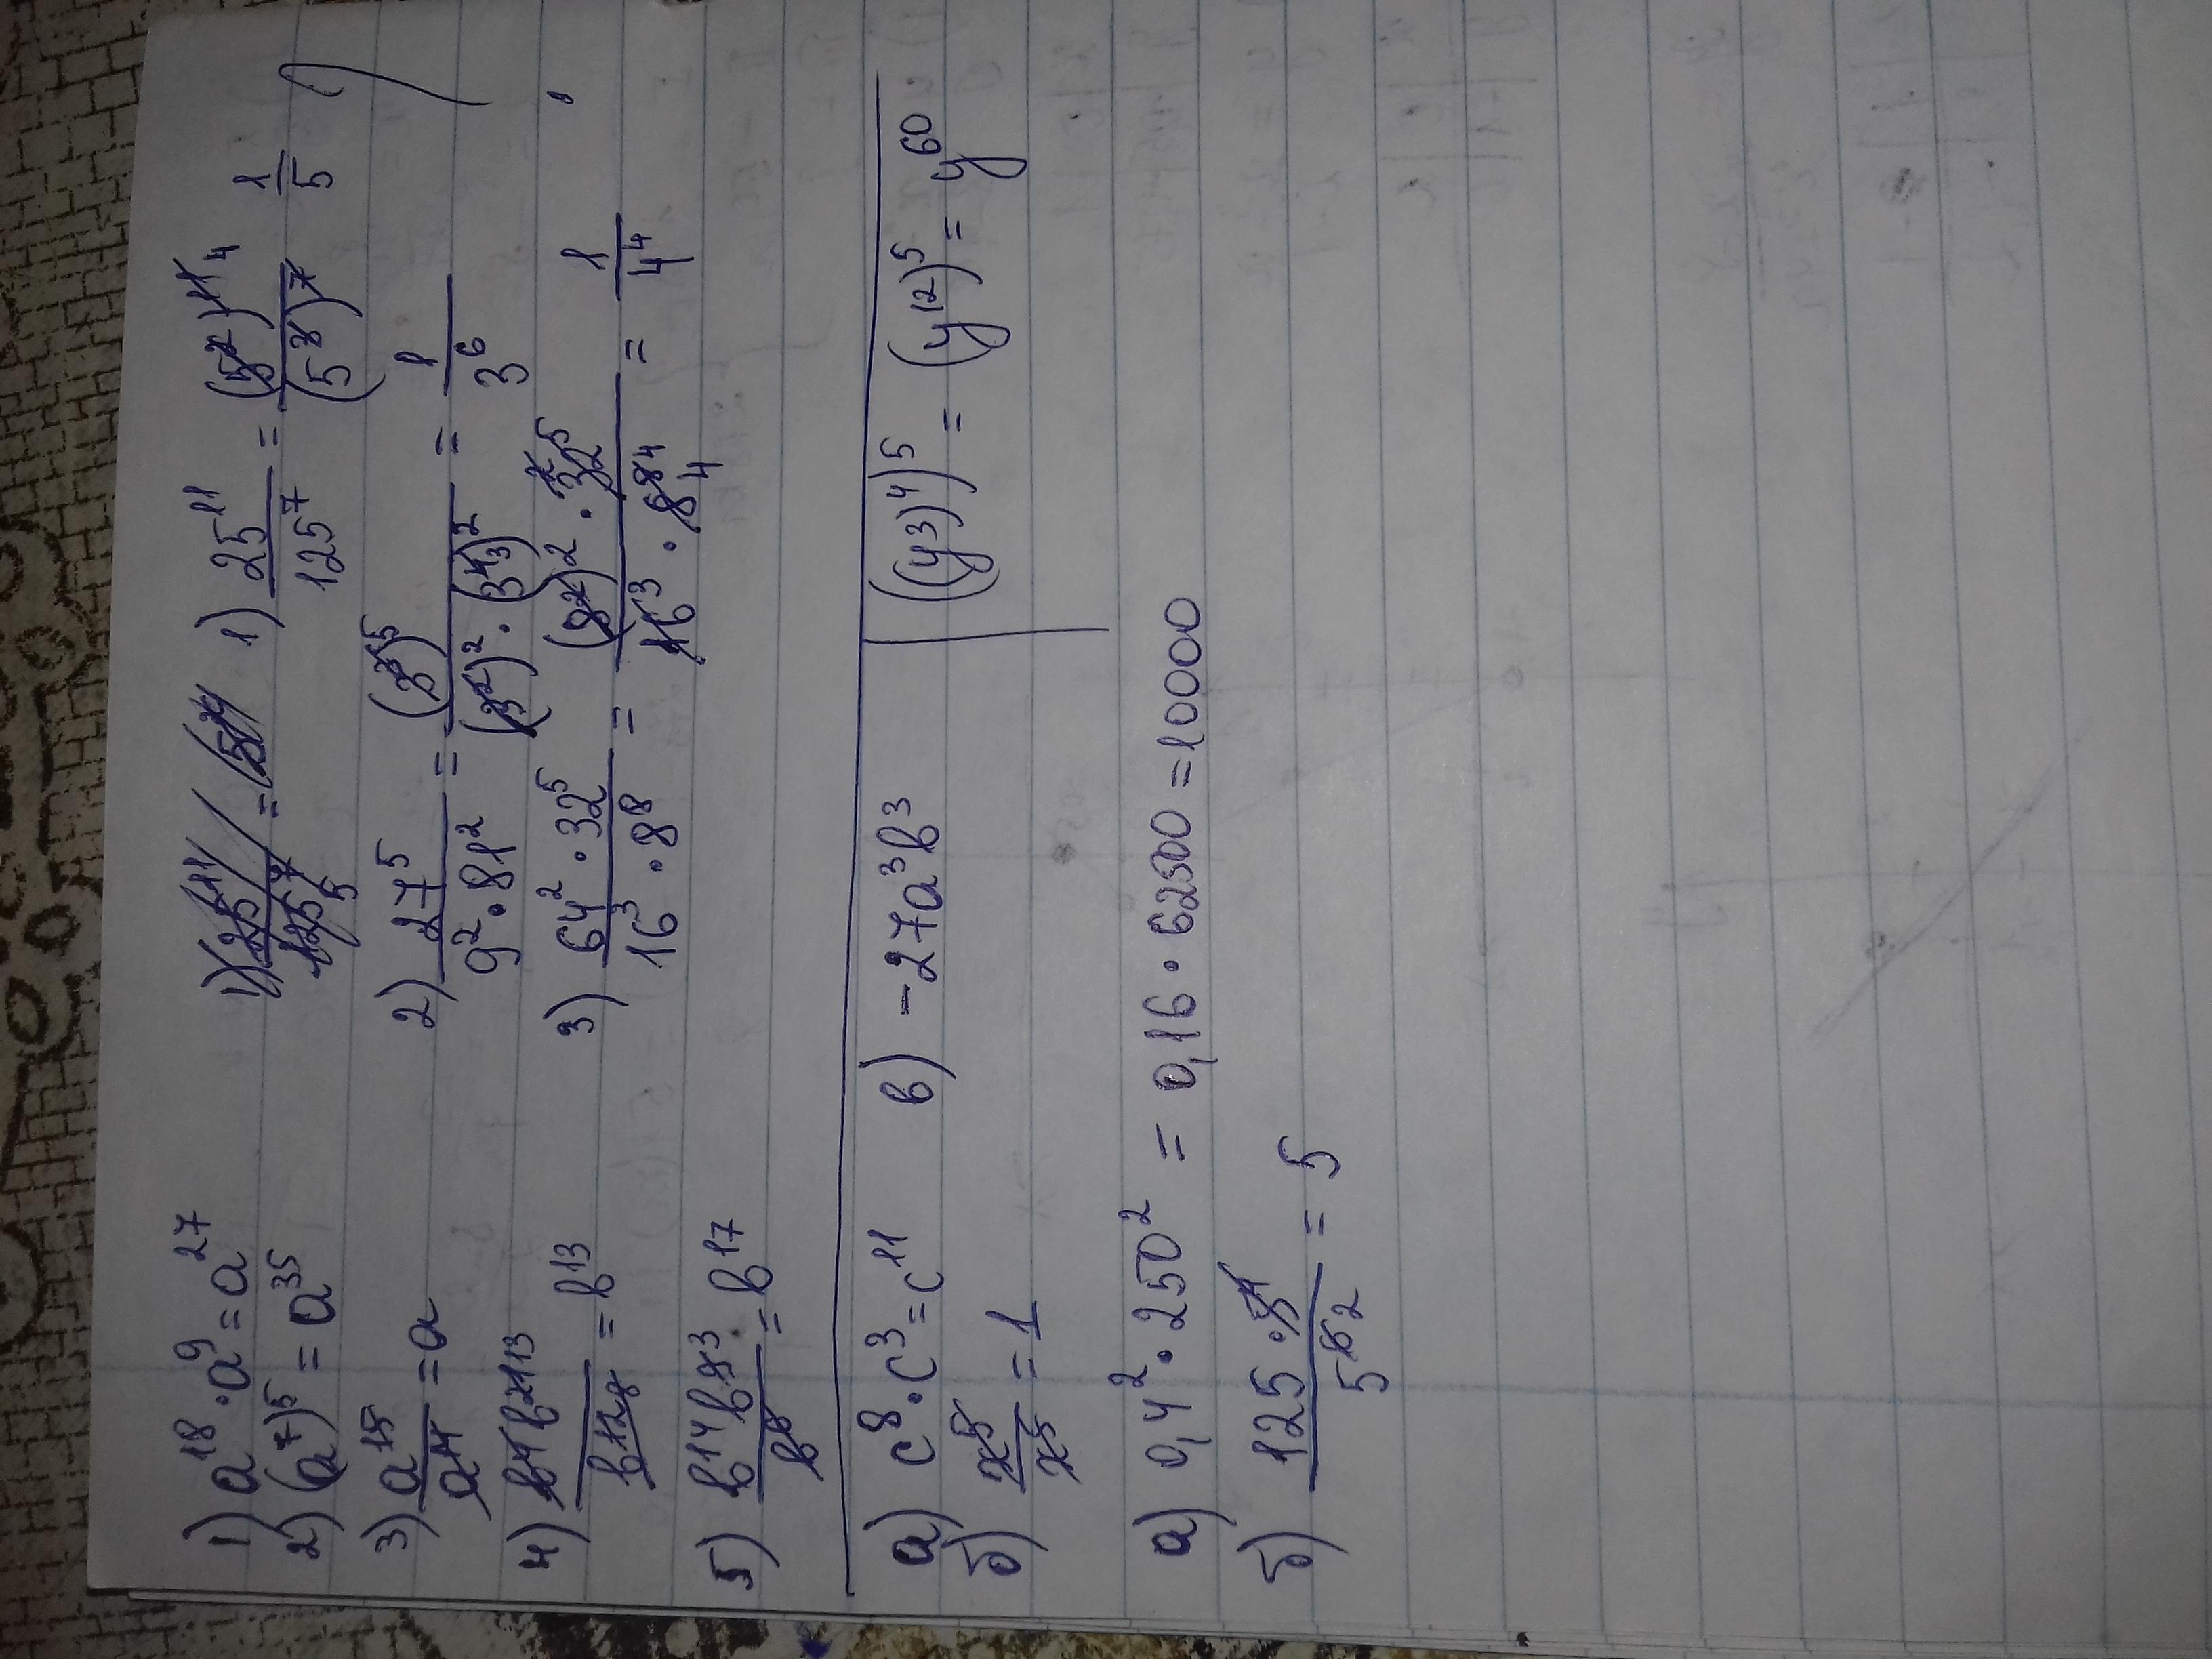 1) a¹⁸ · a⁹ = a²⁷
2) (a⁷)⁵ = a³⁵
3) a¹⁵/a¹⁴ = a
4) = b¹³
5) b¹⁴b⁸³/b⁵ = b¹⁷
1) 25¹¹/125⁷ = (5²)¹¹⁴/(5³)⁷ 1/5
2) 27⁵/9² · 81² = (3³)⁵/(3²)² · (3⁴₃)² = 1/3⁶
3) 64² · 32⁵/16³ · 8⁸ = (8²)² · 32⁵/16³ · 8⁸⁴₄ = 1/4⁴
а) c⁸ · c³ = c¹¹ в) -27a³b³ ((y³)⁴)⁵ = (y¹²)⁵ = y⁶⁰
б) x⁵/x⁵ = 1
а) 0,4² · 250² = 0,16 · 62500 = 10000
б) /5⁶₂ = 5